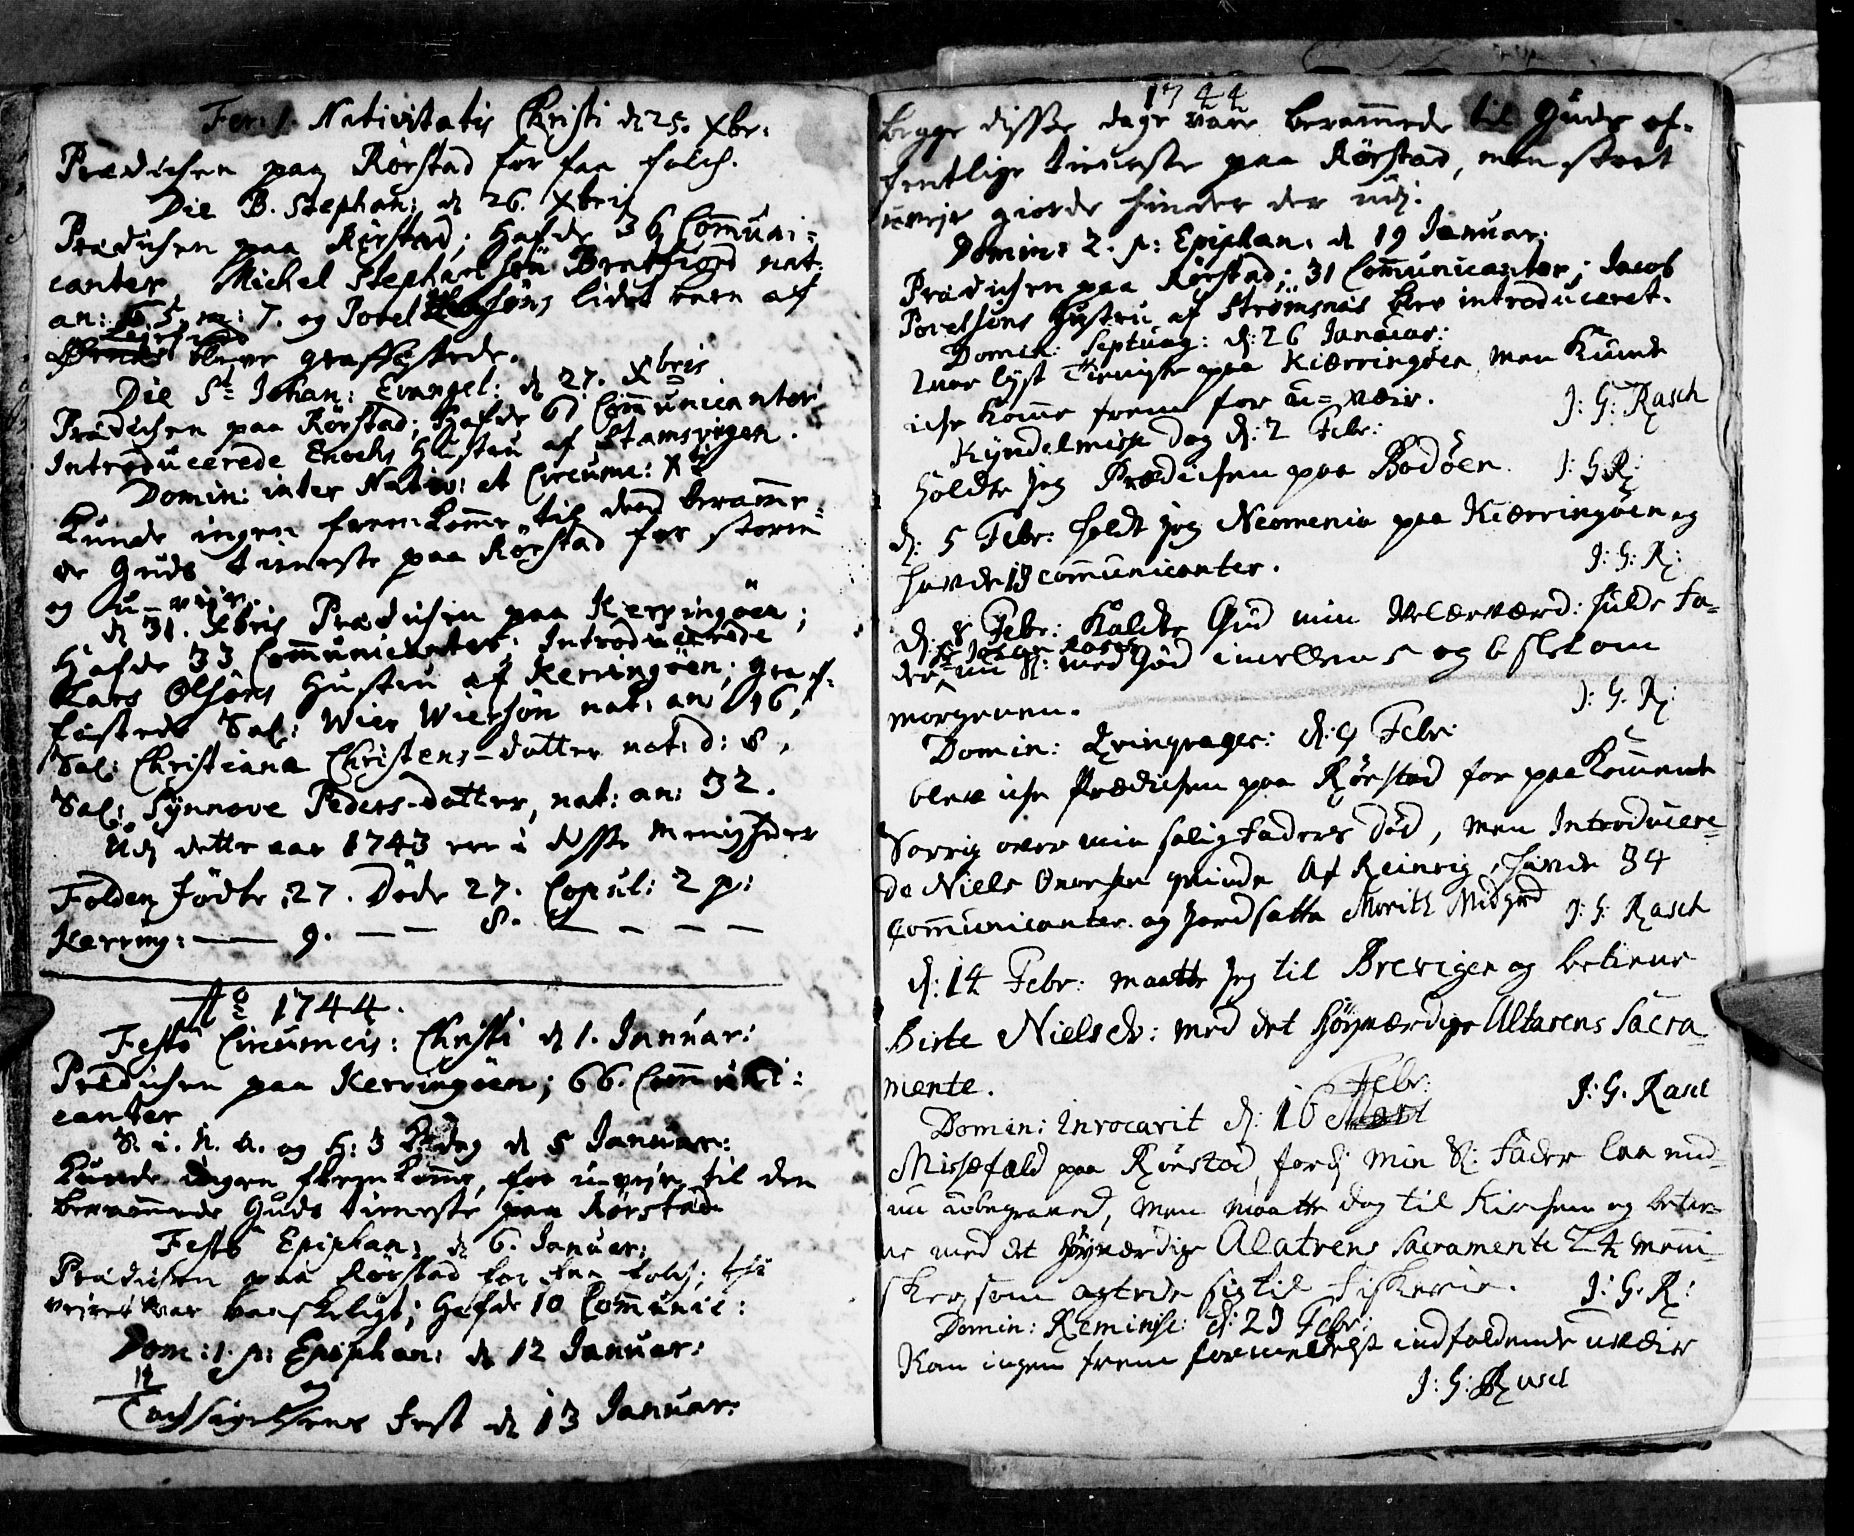 Fer: 1. Nativitatis Christi d 25. Xbr:
Prædichen paa Rörstad for faa folch.
Die B. Stephan: d 26. Xbris
Prædichen paa Rörstad; Hafde 36 Communi-
canter Michel Stephansön Bratfiord nat:
an: 65, m: 7. og Povel söns lidet barn af
blefve graffæstede.
Die St Johan: Evangel: d 27. Xbris
Prædichen paa Rörstad; Hafde 60 Communicanter
Introducerede Enochs Hustru af Stamsvigen.
Domin: inter Nativ: et Circumc: Xti
Kunde ingen fremkomme til dend beramme-
de Guds tieneste paa Rörstad for storm
og u-vejr.
d 31. Xbris Prædichen paa Kerringöen;
Hafde 33 Communicanter; Introducerede
Lars Olsöns Hustru af Kerringöen; graf-
fæstede Sal: Wier Wiersön nat: an: 16,
Sal: Christiana Christens-datter nat: d: 8,
Sal: Synnove Peders-datter, nat: an: 32.
Udj dette aar 1743 ere i disse Menigheder
Folden födte 27. Döde 27. Copul: 2 p:
Kerring: — 9. — — 8. — — — —
Ao 1744.
Festo Circumcis: Christi d 1. Januar:
Prædichen paa Kerringöen; 66. Communi-
canter
S. i. N. A. og H: 3 K: dag d 5 Januar:
Kunde ingen fremkomme, for u-vejr, til den
berammede Guds tieneste paa Rörstad
Festo Epiphan: d 6. Januar:
Prædichen paa Rörstad for faa folch; thi
vejret var vanskeligt; Hafde 10 Communic:
Dom: 1. p: Epiphan: d 12 Januar:
og
Tachsigelsens Fest d 13 Januar:
1744
begge disse dage vare berammede til Guds of-
fentlige tieneste paa Rörstad, men stort
uvejr giorde hinder der udj.
Domin: 2. p: Epiphan: d 19 Januar:
Prædichen paa Rörstad; 31 Communicanter; Jacob
Povelsöns Hustru af Strömsnæs blev introduceret.
Domin: Septuag: d: 26 Januar:
var lyst Tieniste paa Kiærringöen men kunde
iche komme frem for u-vær. J: G: Rasch
Kyndelmisse dag d: 2 Febr:
holdte jeg Prædichen paa Bodöen. J: G: R:
d: 5 Febr: holdt jeg Neomenia paa Kiærringöen og
havde 13 communicanter. J: G: R:
d: 8 Febr: kaldte Gud min Velærværd: hulde Fa-
Hr Johan Rasch
der nu S: ved död imellem 5 og 6 slet om
morgenen. J: G. R:
Domin: Qvinqvages: d: 9 Febr:
blev iche Prædichen paa Rörstad for paakommende
Sorrig over min salig faders död, men Introducere-
de Niels qvinde af Reinvig, havde 34
Communicanter. og jordsatte Morith Midgrd J: G: Rasch
d: 14 Febr: maatte jeg til Brevigen og betiene
Birte Nielsd: med det höyværdige Altarens Sacra-
mente. J: G. Rasch
Febr:
Domin: Invocavit d: 16
Missefald paa Rörstad, fordj min S: fader laa end-
nu ubegraved, men maatte dog til Kirchen og betie-
ne med det höyværdige Alatrens Sacramente 24 meni-
sker, som agtede sig til fiskerie. J: G. R:
Domin: Reminisc: d: 23 Febr:
Kom ingen frem formedelst indfaldende uvær
J: G: Rasch